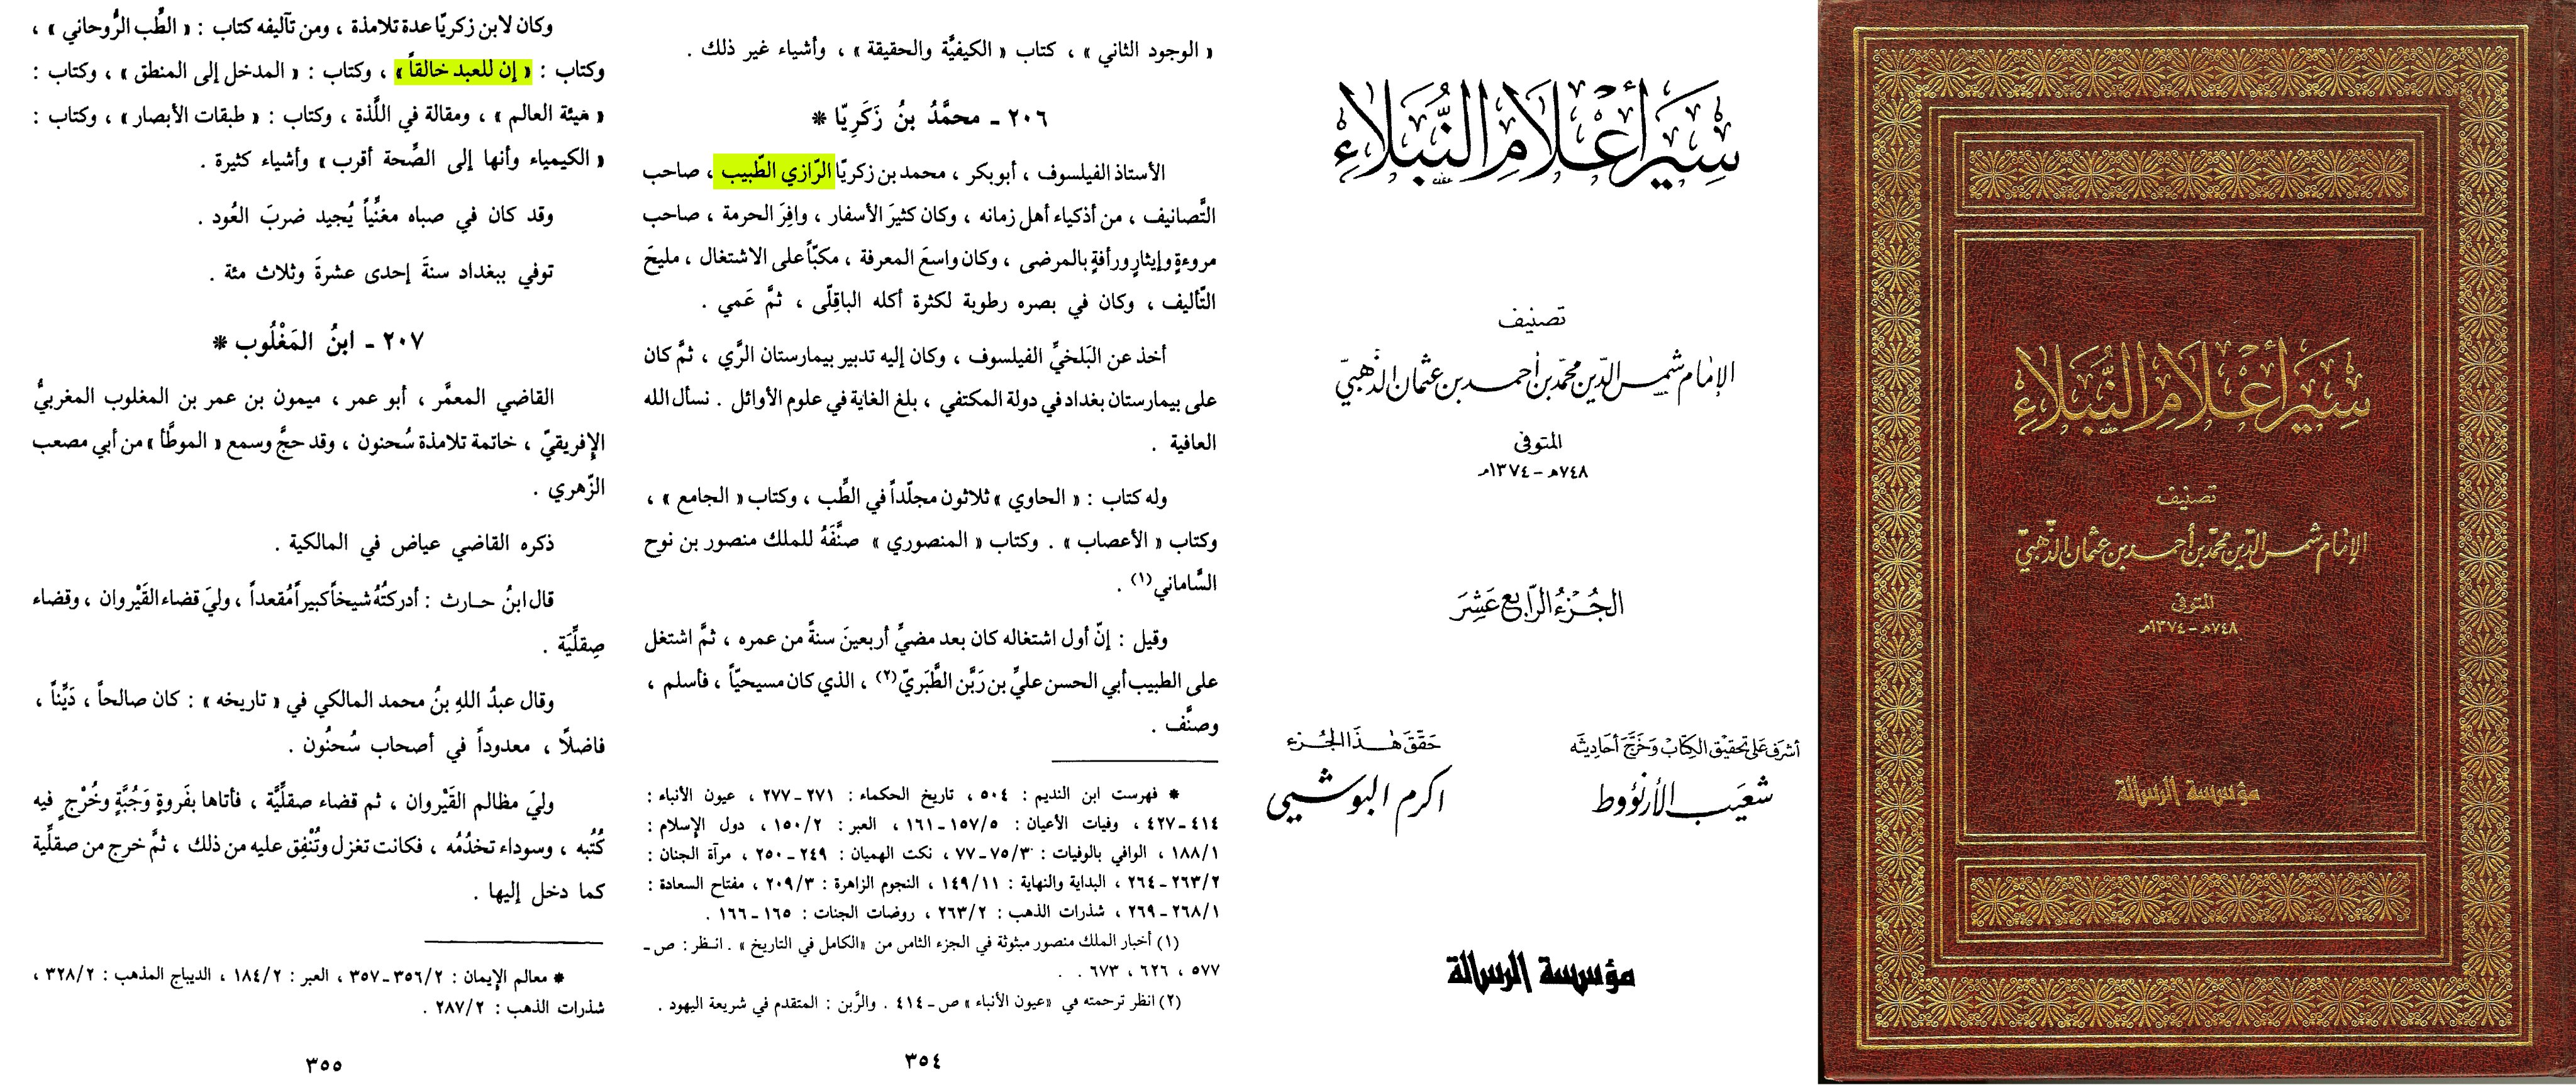 سير أعلام النبلاء
تصنيف
الإمام شمس الدين محمد بن أحمد بن عثمان الذهبي
المتوفى
٧٤٨هـ - ١٣٧٤م
مؤسسة الرسالة
سير أعلام النبلاء
تصنيف
الإمام شمس الدين محمد بن أحمد بن عثمان الذهبي
المتوفى
٧٤٨هـ - ١٣٧٤م
الجزء الرابع عشر
أشرف على تحقيق الكتاب وخرج أحاديثه
شعيب الأرنؤوط
حقق هذا الجزء
أكرم البوشي
مؤسسة الرسالة
« الوجود الثاني » ، كتاب « الكيفيَّة والحقيقة » ، وأشياء غير ذلك .
٢٠٦ - محمَّدُ بنُ زَكَرِيّا *
الأستاذ الفيلسوف ، أبوبكر ، محمد بن زكريّا الرّازي الطّبيب ، صاحب
التَّصانيف ، من أذكياء أهل زمانه ، وكان كثيرَ الأسفار ، وافِرَ الحرمة ، صاحب
مروءةٍ وإيثارٍ ورأفةٍ بالمرضى ، وكان واسعَ المعرفة ، مكبّاً على الاشتغال ، مليحَ
التّأليف ، وكان في بصره رطوبة لكثرة أكله الباقِلّى ، ثمَّ عَمي .
أخذ عن البَلخيِّ الفيلسوف ، وكان إليه تدبير بيمارستان الرَّي ، ثمَّ كان
على بيمارستان بغداد في دولة المكتفي ، بلغ الغاية في علوم الأوائل . نسأل الله
العافية .
وله كتاب : « الحاوي » ثلاثون مجلّداً في الطِّب ، وكتاب « الجامع » ،
وكتاب « الأعصاب » . وكتاب « المنصوري » صنَّفَهُ للملك منصور بن نوح
السَّاماني (١) .
وقيل : إنّ أول اشتغاله كان بعد مضيِّ أربعينَ سنةً من عمره ، ثمَّ اشتغل
على الطبيب أبي الحسن عليِّ بن رَبَّن الطَّبَريّ (٢) ، الذي كان مسيحيّاً ، فأسلم ،
وصنَّف .
* فهرست ابن النديم : ٥٠٤ ، تاريخ الحكماء : ٢٧١ - ٢٧٧ ، عيون الأنباء :
٤١٤ - ٤٢٧ ، وفيات الأعيان : ١٥٧/٥ - ١٦١ ، العبر : ١٥٠/٢ ، دول الإسلام :
١٨٨/١ ، الوافي بالوفيات : ٧٥/٣ - ٧٧ ، نكت الهميان : ٢٤٩ - ٢٥٠ ، مرآة الجنان :
٢٦٣/٢ - ٢٦٤ ، البداية والنهاية : ١٤٩/١١ ، النجوم الزاهرة : ٢٠٩/٣ ، مفتاح السعادة :
٢٦٨/١ - ٢٦٩ ، شذرات الذهب : ٢٦٣/٢ ، روضات الجنات : ١٦٥ - ١٦٦ .
(١) أخبار الملك منصور مبثوثة في الجزء الثامن من «الكامل في التاريخ » . انـظر : ص -
٥٧٧ ، ٦٢٦ ، ٦٧٣ .
(٢) انظر ترجمته في «عيون الأنباء » ص - ٤١٤ . والرَّبن : المتقدم في شريعة اليهود .
٣٥٤
وكان لابن زكريّا عدة تلامذة ، ومن تآليفه كتاب : « الطِّب الرُّوحاني » ،
وكتاب : « إن للعبد خالقاً » ، وكتاب : « المدخل إلى المنطق » ، وكتاب :
« هيئة العالم » ، ومقالة في اللَّذة ، وكتاب : « طبقات الأبصار » ، وكتاب :
« الكيمياء وأنها إلى الصِّحة أقرب » وأشياء كثيرة .
وقد كان في صباه مغنِّياً يُجيد ضربَ العُود .
توفي ببغداد سنةَ إحدى عشرةَ وثلاث مئة .
٢٠٧ - ابنُ المَغْلُوب *
القاضي المعمَّر ، أبو عمر ، ميمون بن عمر بن المغلوب المغربيُّ
الإفريقيّ ، خاتمة تلامذة سُحنون ، وقد حجَّ وسمع « الموطَّأ » من أبي مصعب
الزّهري .
ذكره القاضي عياض في المالكية .
قال ابنُ حـارث : أدركتُهُ شيخاً كبيراً مُقعداً ، وليَ قضاء القَيْروان ، وقضاء
صِقلِّيَة .
وقال عبدُ اللهِ بنُ محمد المالكي في « تاريخه » : كان صالحاً ، دَيِّناً ،
فاضلاً ، معدوداً في أصحاب سُحنُون .
وليَ مظالم القَيْروان ، ثم قضاء صقلِّيَّة ، فأتاها بفَروةٍ وَجُبَّةٍ وخُرْجٍ فيه
كُتُبه ، وسوداء تخدُمُه ، فكانت تغزل وتُنْفِق عليه من ذلك ، ثمَّ خرج من صقلِّية
كما دخل إليها .
* معالم الإيمان : ٣٥٦/٢ - ٣٥٧ ، العبر : ١٨٤/٢ ، الديباج المذهب : ٣٢٨/٢ ،
شذرات الذهب : ٢٨٧/٢ .
٣٥٥